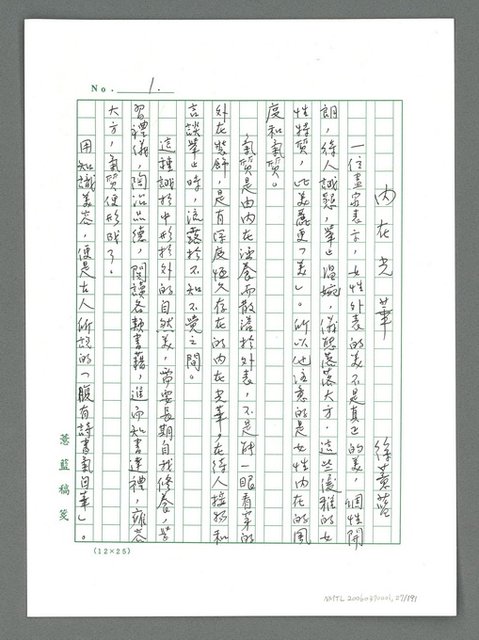 No. 1.
內在光華
徐薏藍
一位畫家表示，女性外表的美不是真正的美，個性開
朗，待人誠懇，舉止溫婉，儀態落落大方，這些優雅的女
性特質，比美麗更「美」。所以他注意的是女性內在的風
度和氣質。
氣質是由內在涵養而散諸於外表，不是融一眼看穿的
外在裝飾，是有深度恆久存在的內在光華，在待人接物和
言談舉止時，流露於不知不覺之間。
這種誠於中形於外的自然美，需要長期自我修養，學
習禮儀，陶冶品德，閱讀各類書籍，進而知書達禮，雍容
大方，氣質便形成了。
用知識美容，便是古人所說的「腹有詩書氣自華」。
薏藍稿箋
(12×25)
NMTL 20060390001, 27/191